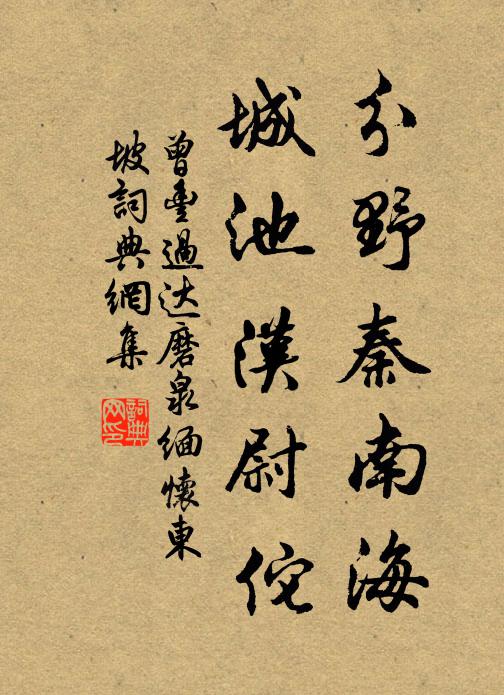 分野秦南海
城池漢尉佗
曾豐過达磨泉緬懷東
坡詞典網集
詞典
网印